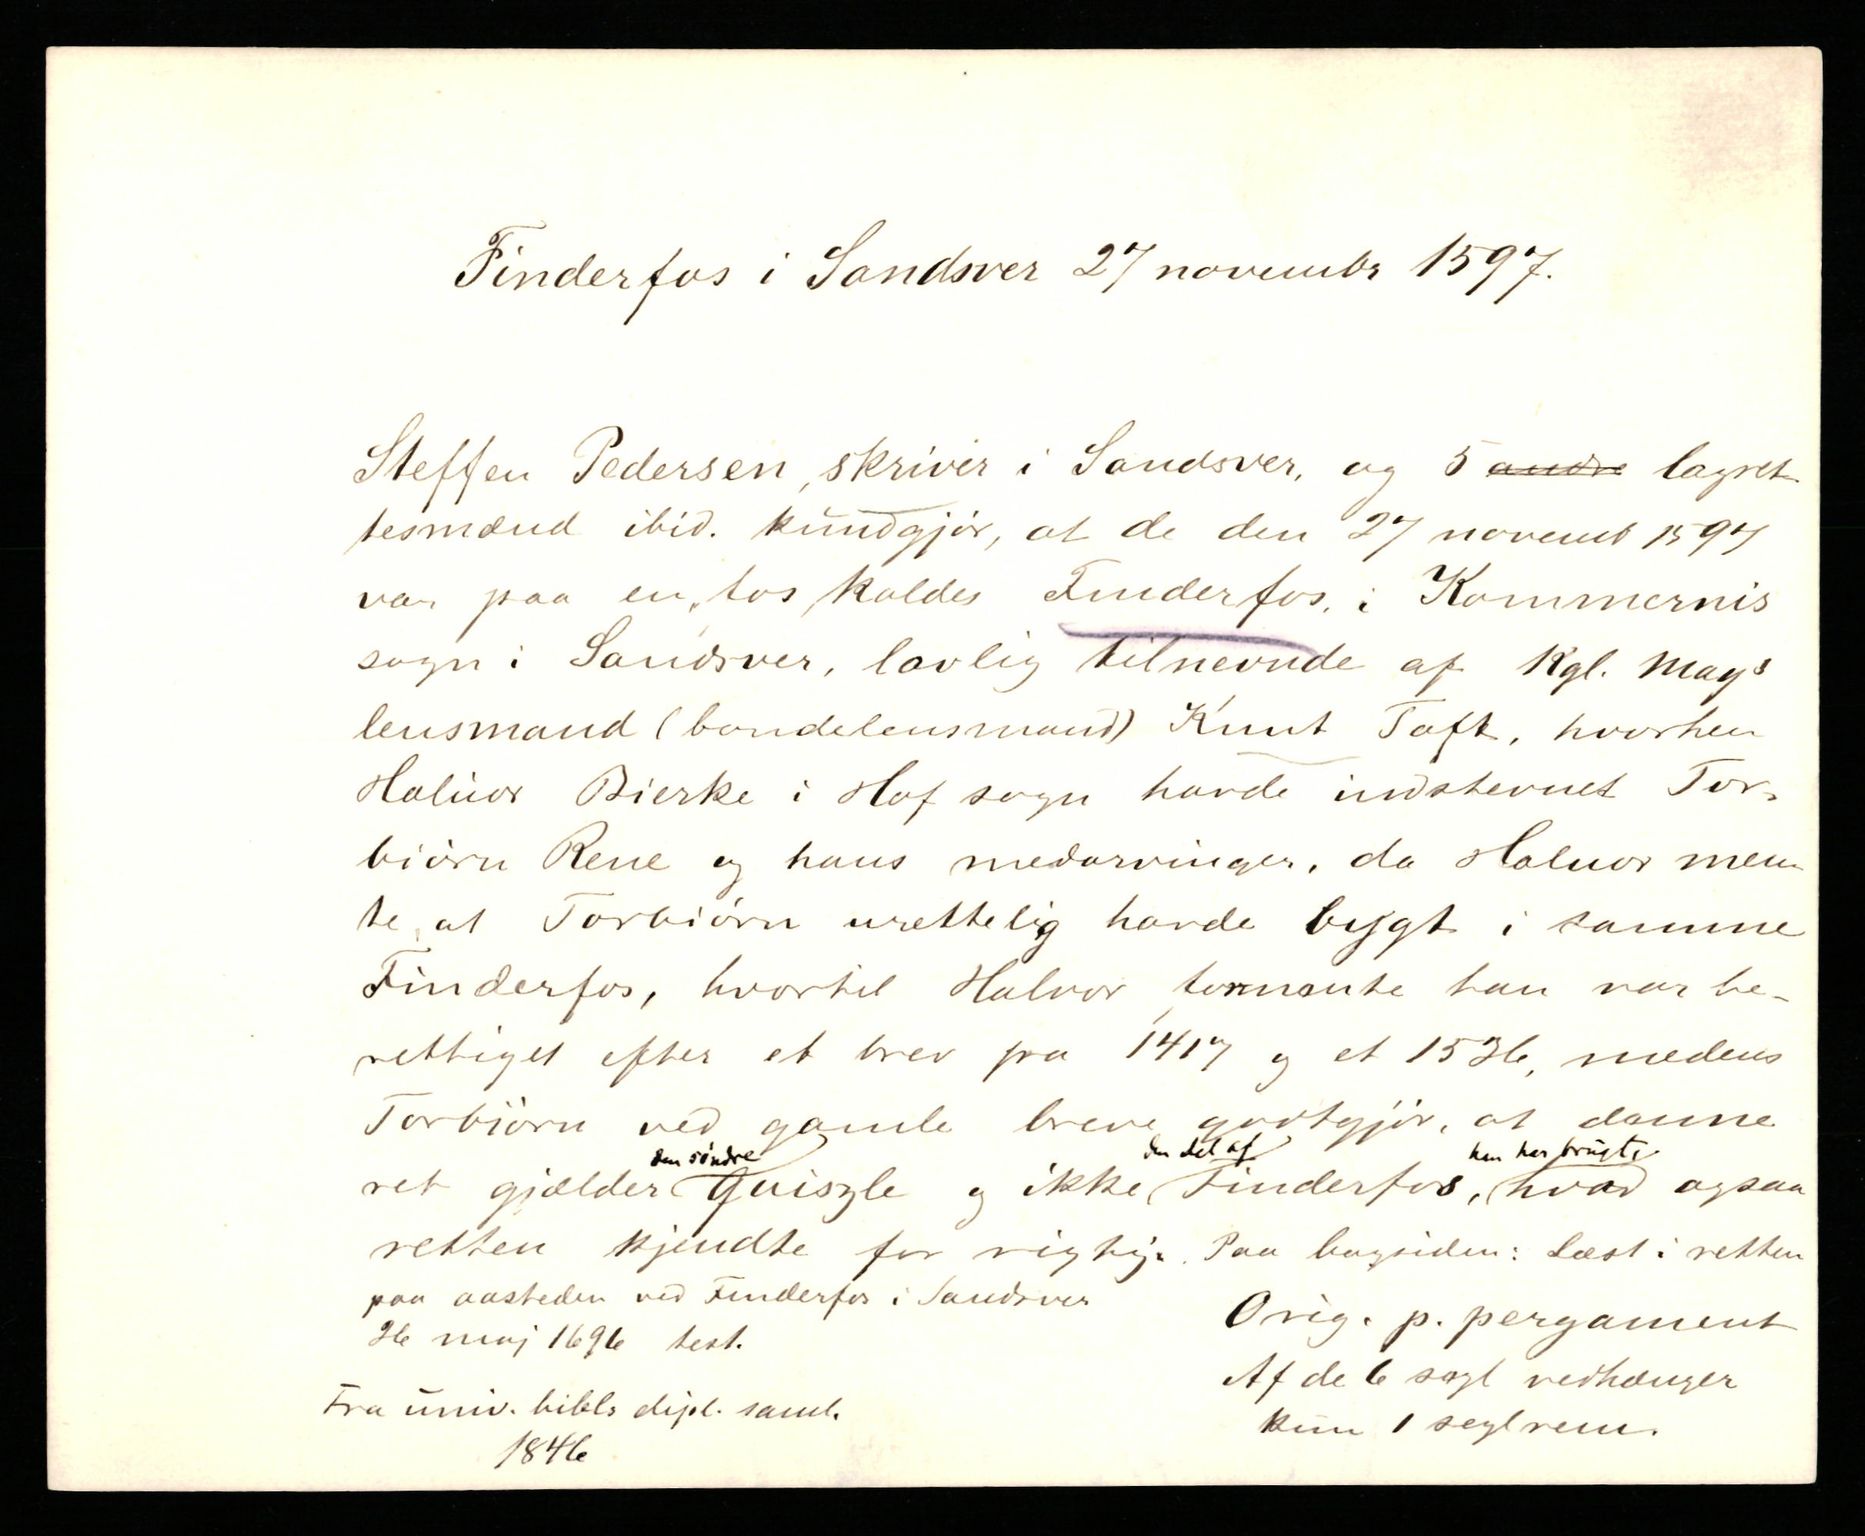 Finderfos i Sandsver 27 novembr 1597.
Steffen Pedersen, skriver i Sandsver, og 5 andre lagret-
tesmænd ibid. kundgjør, at de den 27 novemb 1597
var paa en fos kaldes Finderfos, i Kommernis
sogn i Sandsver, lovlig tilnevnde af kgl. Mays
lensmand (bondelensmand) Knut Toft, hvorhen
Haluor Bierke i Hof sogn havde indstevnet Tor-
biørn Rene og hans medarvinger, da Haluor men-
te, at Torbiørn urettelig havde bygt i samme
Finderfos, hvortil Halvor formente han var be-
rettiget efter et brev fra 1417 og et 1536, medens
Torbiørn ved gamle breve godtgjør, at denne
ret gjælder den søndre Quiszle og ikke den del af Finderfos, han har brugt, hvad ogsaa
retten kjendte for rigtig. Paa bagsiden: Læst i retten
paa aasteden ved Finderfos i Sandsver
26 maj 1696 test.
Orig. p. pergament
Af de 6 segl vedhænger
kun 1 seglrem.
Fra univ. bibls dipl. saml.
1846